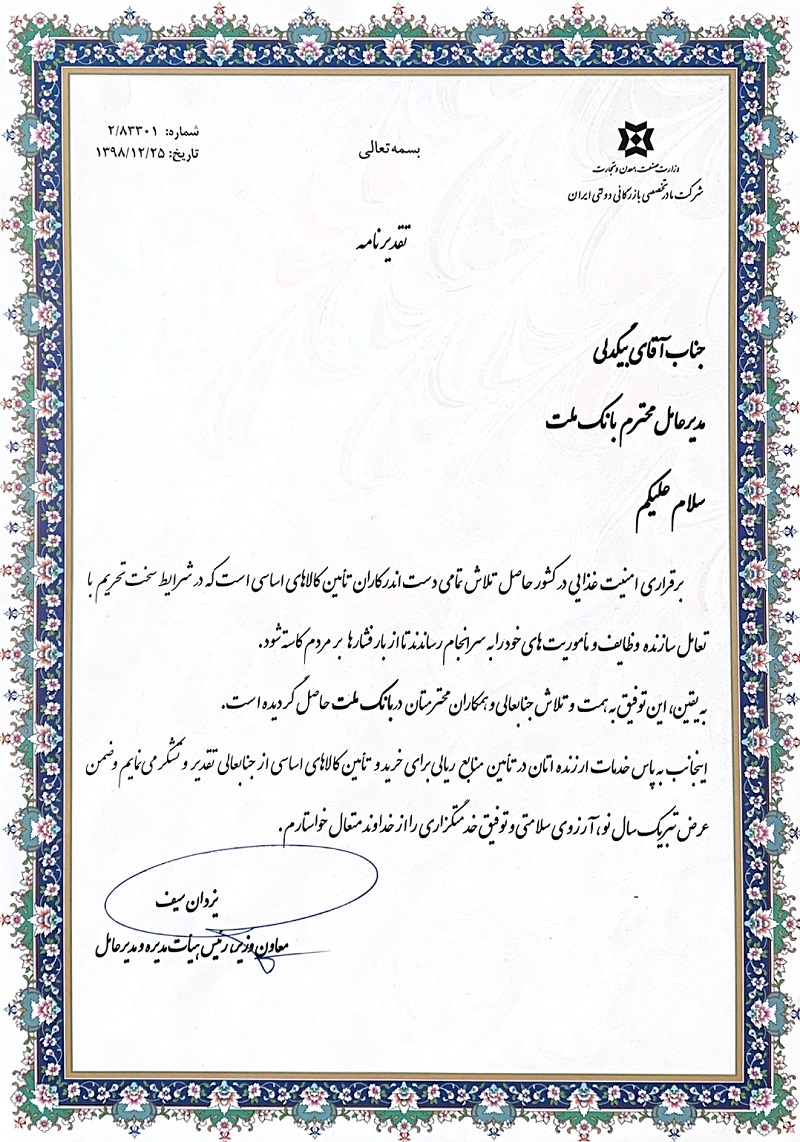 وزارت صنعت، معدن و تجارت
شرکت مادر تخصصی بازرگانی دولتی ایران
بسمه تعالی
شماره: ۲/۸۳۳۰۱
تاریخ: ۱۳۹۸/۱۲/۲۵
تقدیرنامه
جناب آقای بیگدلی
مدیرعامل محترم بانک ملت
سلام علیکم
برقراری امنیت غذایی در کشور حاصل تلاش تمامی دست اندرکاران تأمین کالاهای اساسی است که در شرایط سخت تحریم با
تعامل سازنده وظایف و مأموریت های خود را به سرانجام رساندند تا از بار فشارها بر مردم کاسته شود.
به یقین، این توفیق به همت و تلاش جنابعالی و همکاران محترمتان در بانک ملت حاصل گردیده است.
اینجانب به پاس خدمات ارزنده اتان در تأمین منابع ریالی برای خرید و تأمین کالاهای اساسی از جنابعالی تقدیر و تشکر می نمایم و ضمن
عرض تبریک سال نو، آرزوی سلامتی و توفیق خدمتگزاری را از خداوند متعال خواستارم.
یزدان سیف
معاون وزیر، رئیس هیأت مدیره و مدیرعامل